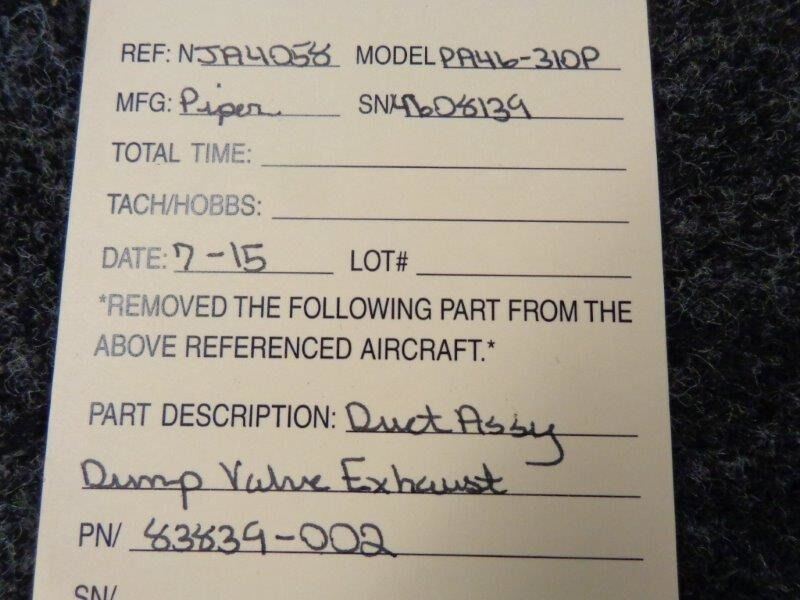 REF: NJA4058 MODEL PA46-310P
MFG: Piper SN/4608139
TOTAL TIME:
TACH/HOBBS:
DATE: 7-15 LOT#
*REMOVED THE FOLLOWING PART FROM THE
ABOVE REFERENCED AIRCRAFT.*
PART DESCRIPTION: Duct Assy
Dump Valve Exhaust
PN/ 83839-002
SN/